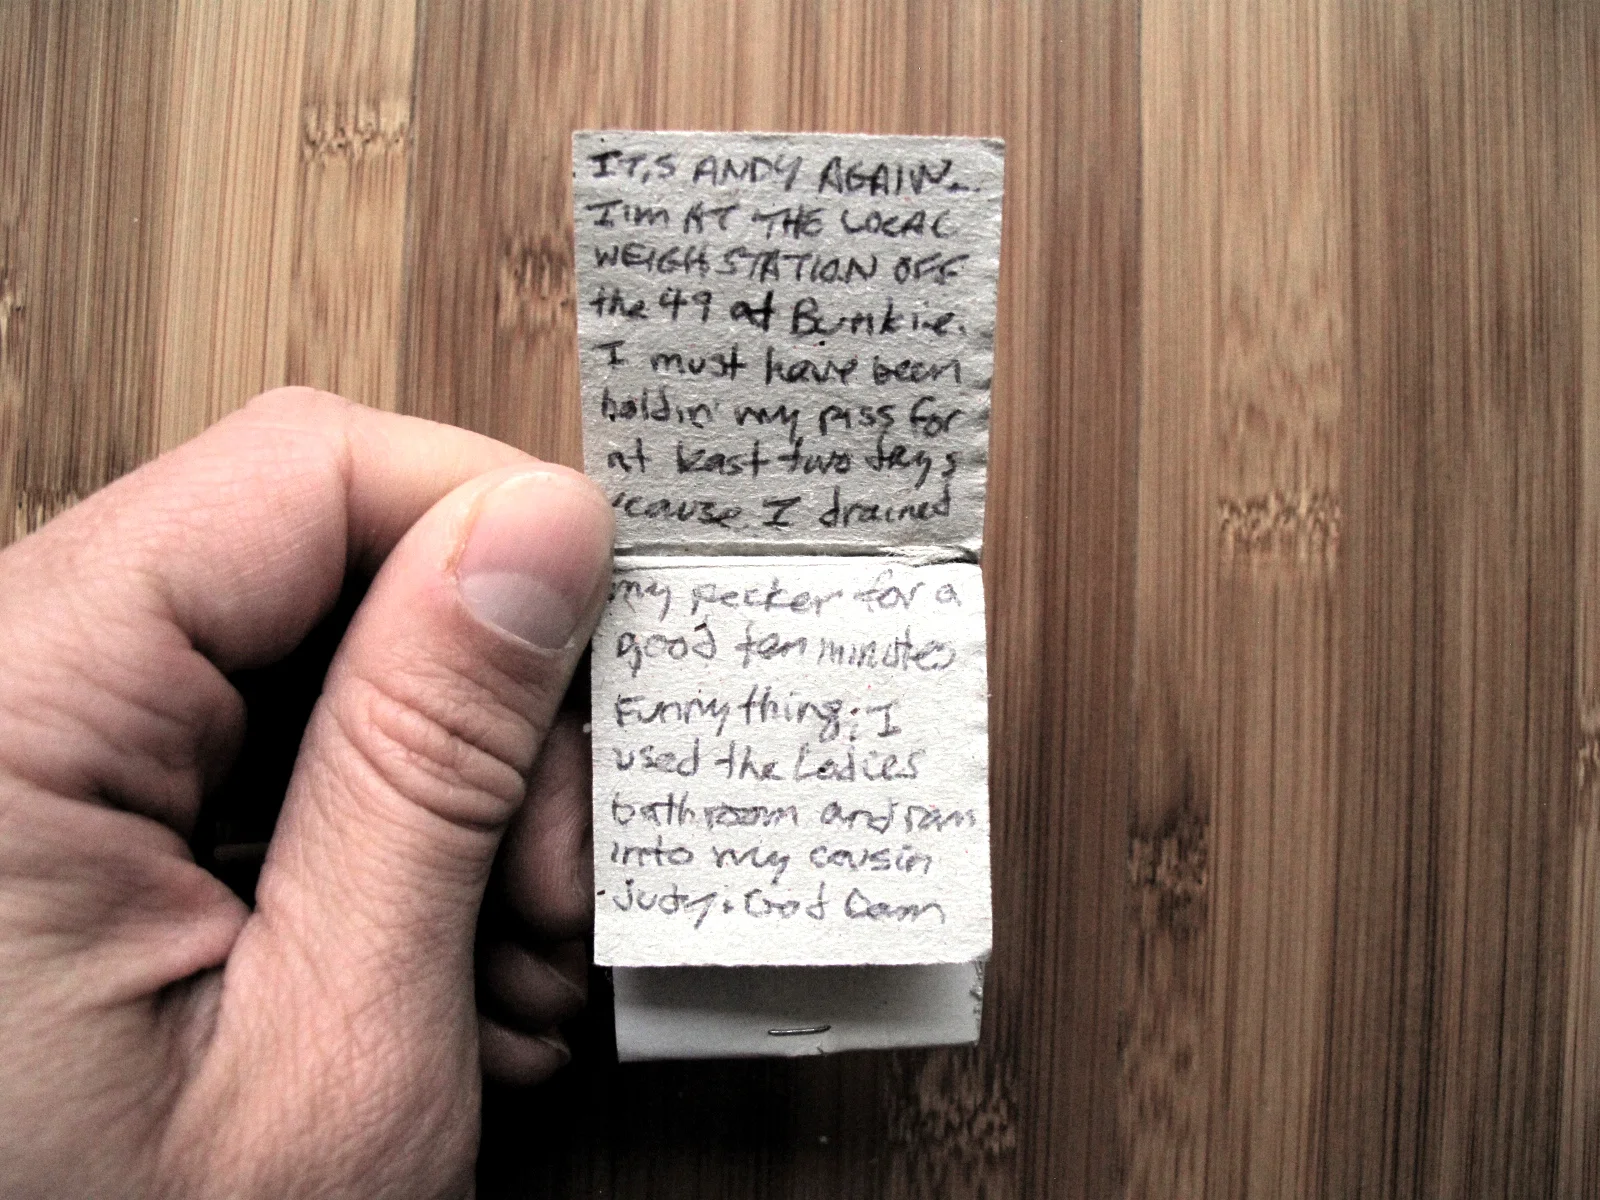 IT,S ANDY AGAIN...
I'M AT THE LOCAL
WEIGH STATION OFF
the 49 at Bunkie.
I must have been
holdin' my piss for
at least two days
'cause I drained
my pecker for a
good ten minutes
Funny thing; I
used the Ladies
bathroom and ran
into my cousin
Judy. God Damn